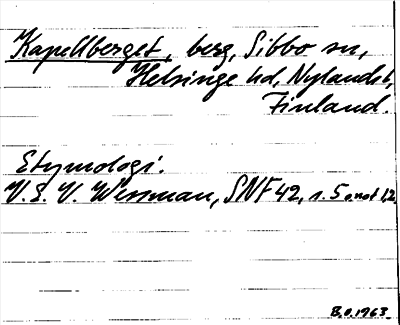 Kapellberget, berg, Sibbo sn,
Helsinge hd, Nylands l,
Finland.
Etymologi.
V. E. V. Wessman, SNF 42, s. 5 o. not 1,2
B.o.1963